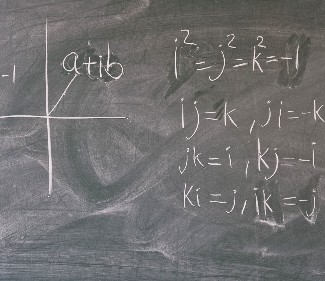 -1
a+ib
i²=j²=k²=-1
ij=k, ji=-k
jk=i, kj=-i
ki=j, ik=-j